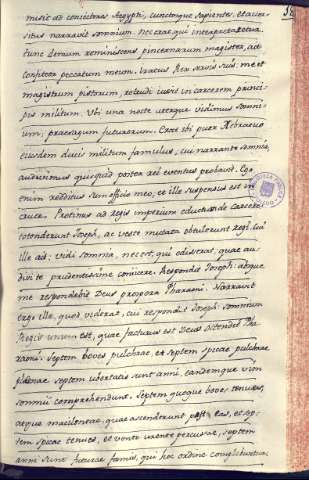 misit ad coniectores Aegypti, cunctosque sapientes, et accer-
sitis narravit somnium. Nec erat qui interpretaretur.
tunc demum reminiscens pincernarum magister, ait:
Confiteor peccatum meum. Iratus Rex servis suis, me et
magistrum pistorum, retrudi iussit in carcerem princi-
pis militum. Ubi una nocte uterque vidimus somni-
um, praesagum futurorum. Erat ibi puer Hebraeus
eiusdem ducis militum famulus, cui narrantes somnia,
audivimus quidquid postea rei eventus probavit. Ego
enim redditus sum officio meo, et ille suspensus est in
cruce. Protinus ad regis imperium eductum de carcere
totonderunt Joseph, ac veste mutata obtulerunt regi. cui
ille ait: vidi somnia, nec est, qui edisserat, quae au-
divi te prudentissime coniicere. Respondit Joseph: absque
me respondebit Deus prospera Pharaoni. Narravit
ergo ille, quod viderat, cui respondit Joseph: somnium
Regis unum est, quae facturus est Deus ostendit Pha
raoni. Septem boves pulchrae, et septem spicae pulchrae
plenae septem ubertatis sunt anni, eandemque vim
somnii comprehendunt. Septem quoque boves tenues,
atque macilentae, quae ascenderunt post eas, et sep-
tem spicae tenues, et vento urente percussae, septem
anni sunt futurae famis, qui hoc ordine complebuntur.